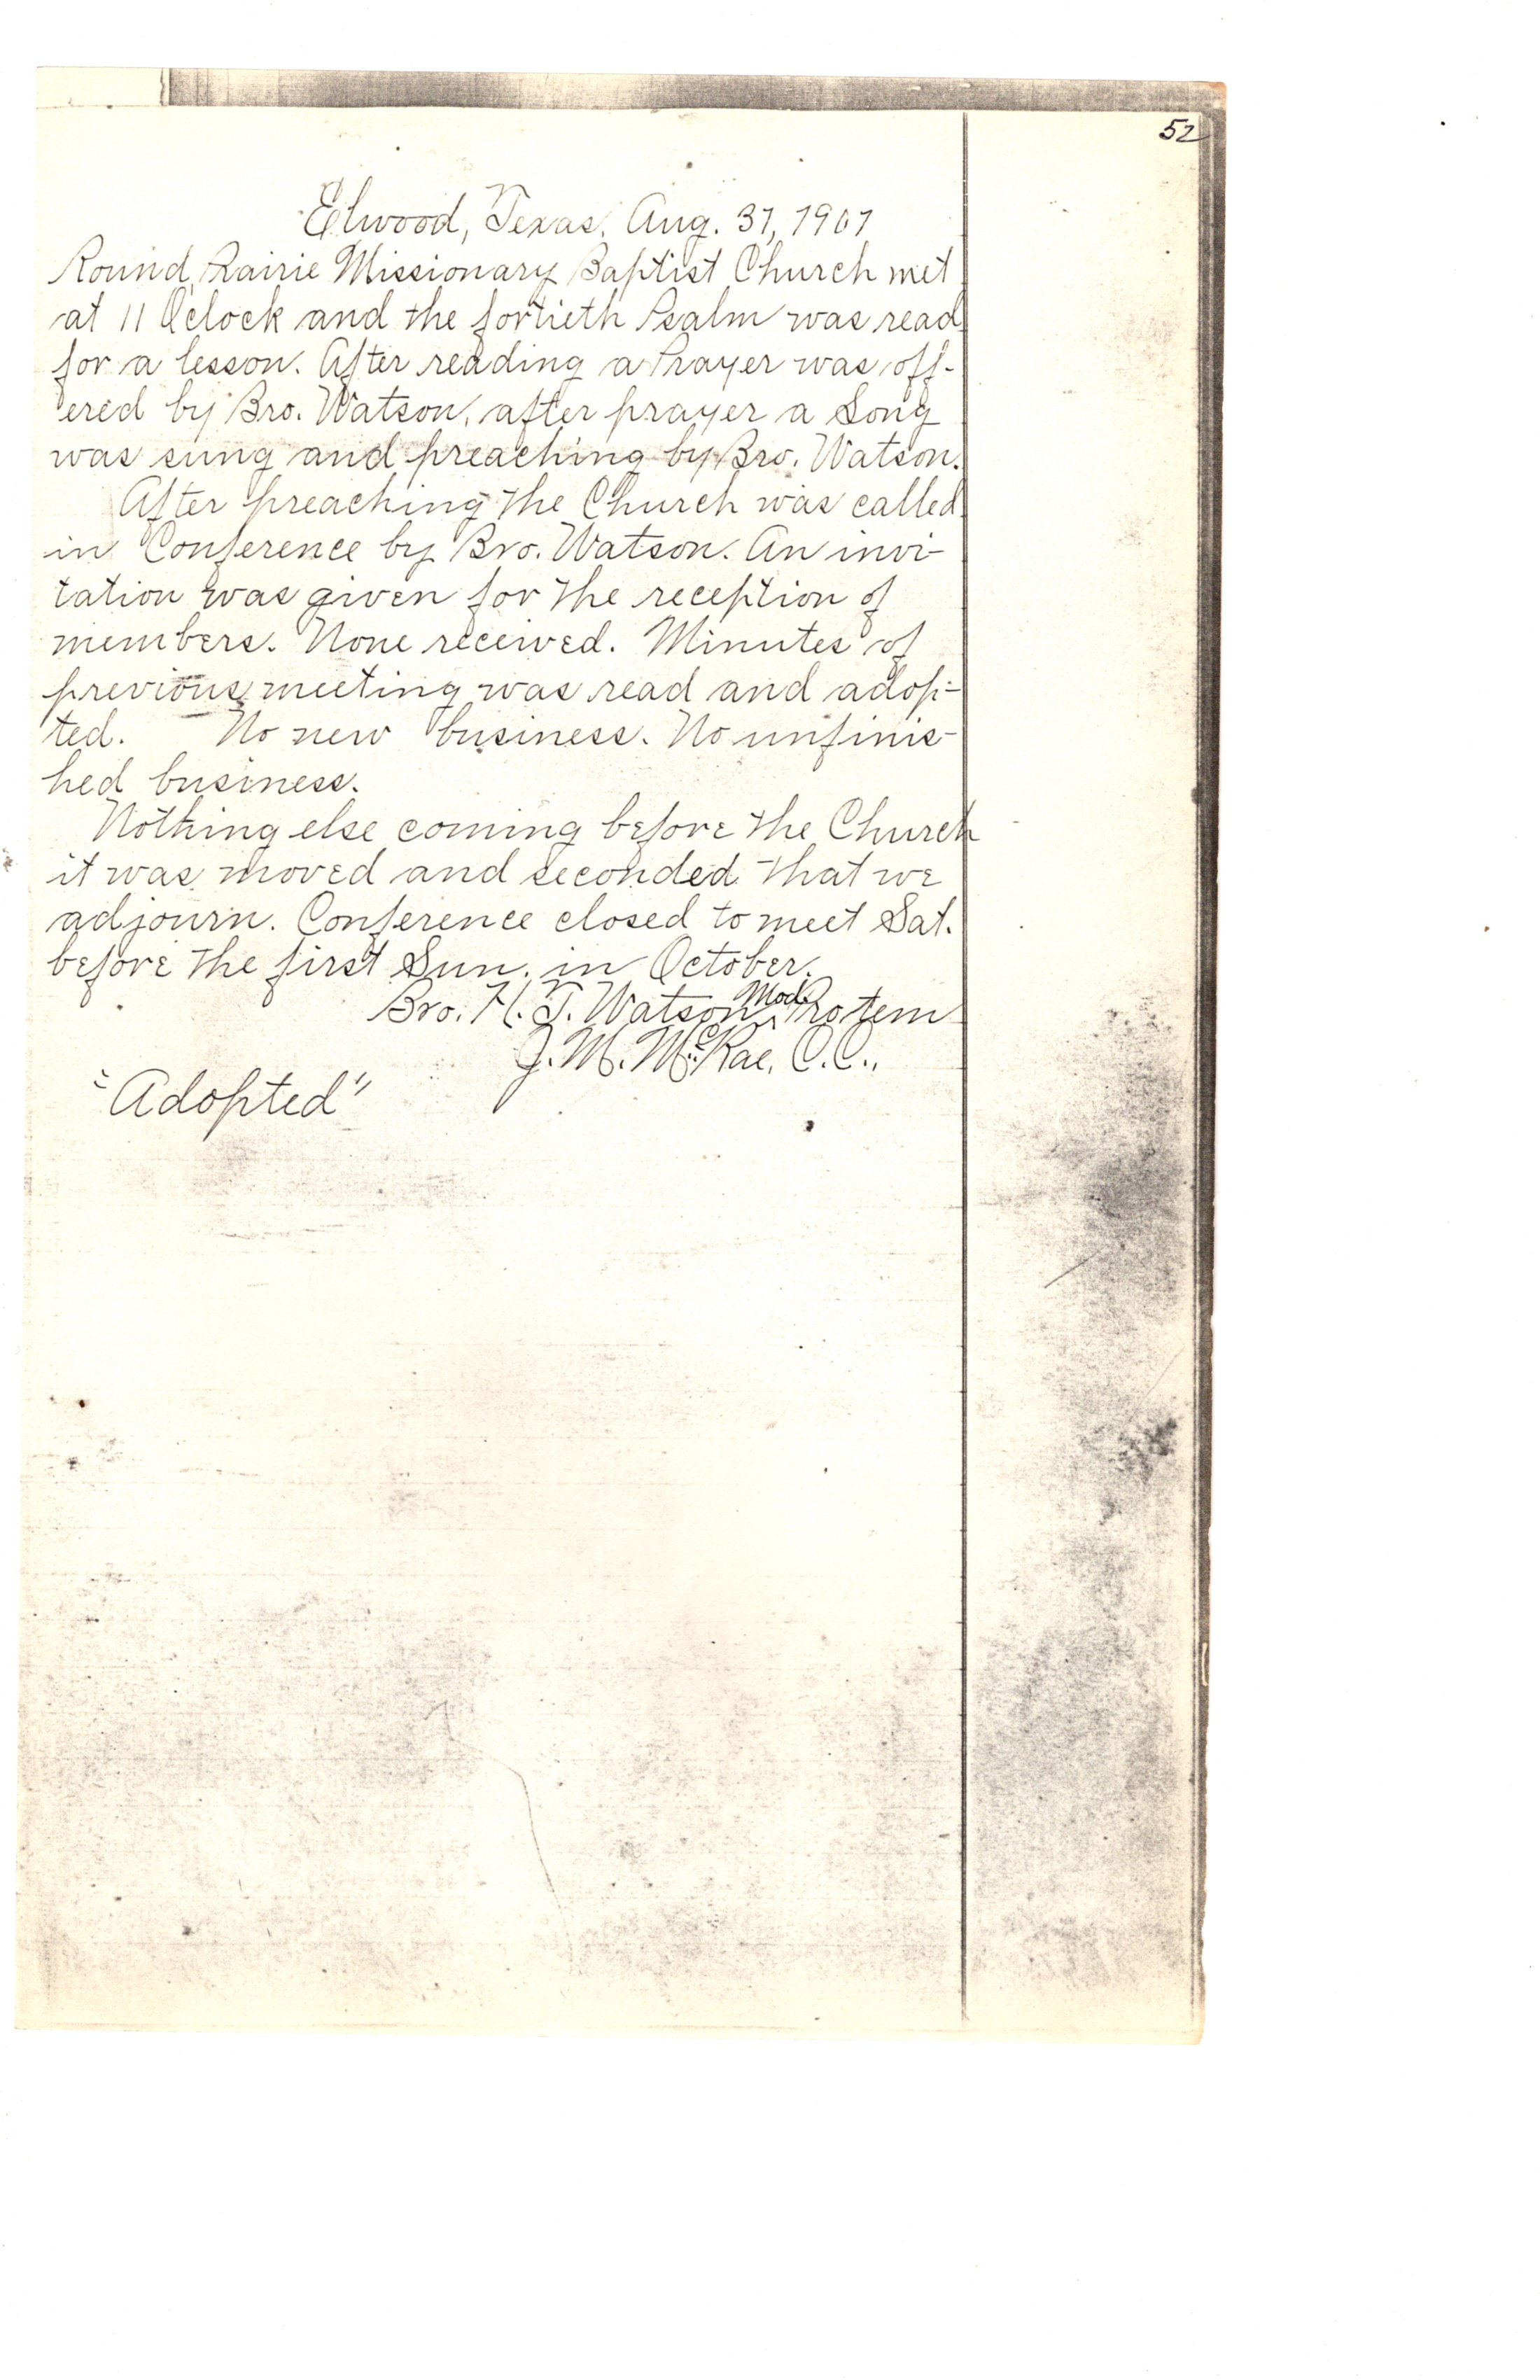 52
Elwood, Texas, Aug. 31, 1907
Round Prairie Missionary Baptist Church met
at 11 O'clock and the fortieth Psalm was read
for a lesson. After reading a Prayer was off-
ered by Bro. Watson, after prayer a Song
was sung and preaching by Bro. Watson.
After preaching the Church was called
in Conference by Bro. Watson. An invi-
tation was given for the reception of
members. None received. Minutes of
previous meeting was read and adop-
ted. No new business. No unfinis-
hed business.
Nothing else coming before the Church
it was moved and seconded that we
adjourn. Conference closed to meet Sat.
before the first Sun. in October.
Bro. H. T. Watson Mod. Protem
J. M. McRae, C.C.,
"Adopted"